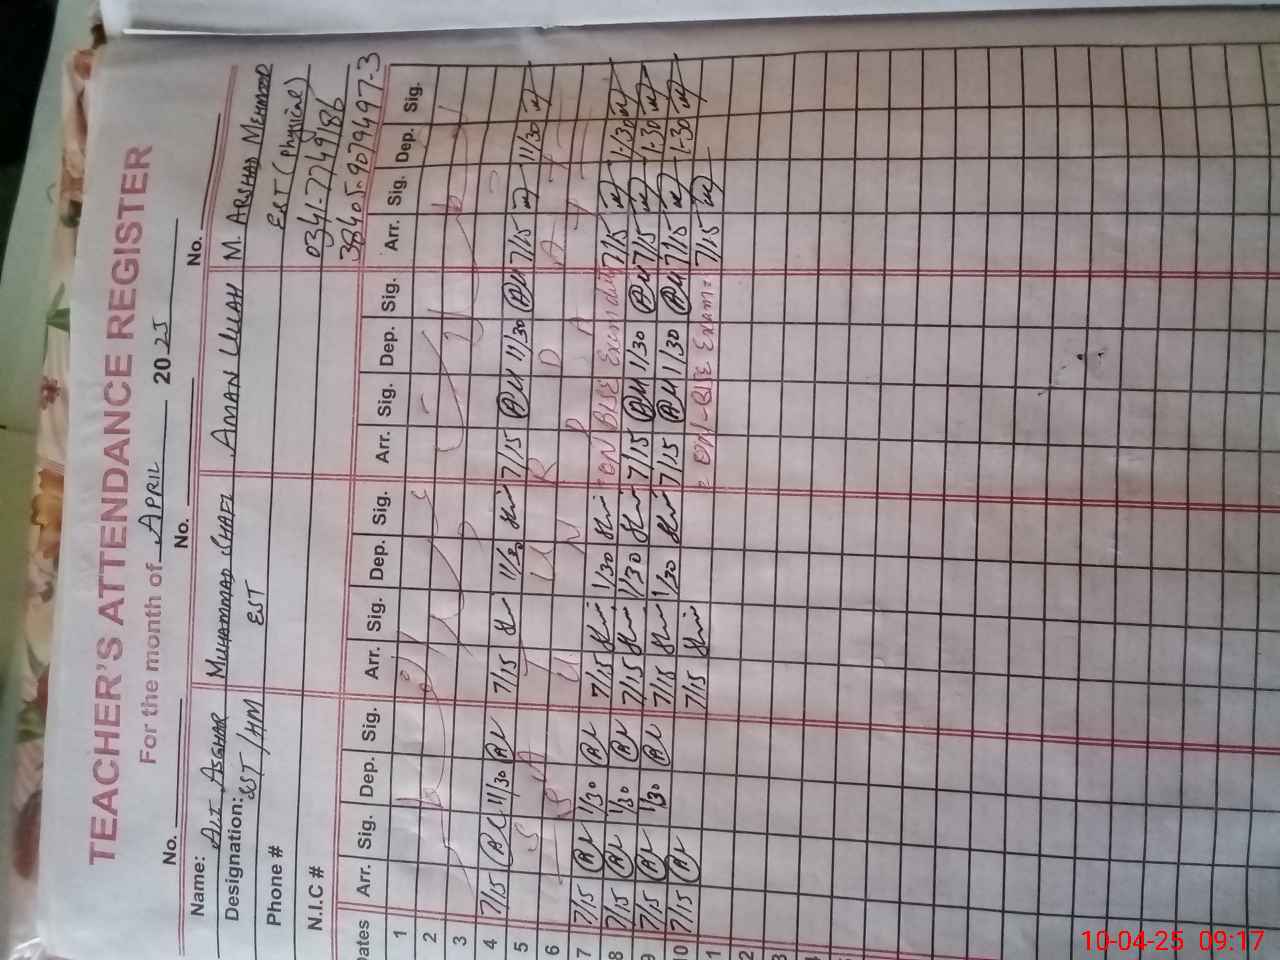 TEACHER'S ATTENDANCE REGISTER
For the month of APRIL 2025
No. No. No.
Name: ALI ASGHAR MUHAMMAD SHAFI AMAN ULLAH M. ARSHAD MEHMOOD
Designation: SST/HM EST EST (Physical)
Phone # 0341-7749186
N.I.C # 38405-9079497-3
Dates Arr. Sig. Dep. Sig. Arr. Sig. Dep. Sig. Arr. Sig. Dep. Sig. Arr. Sig. Dep. Sig.
1
2
3
4 7/15 11/30 7/15 11/30 7/15 11/30 7/15 11/30
5 SATURDAY
6 SUNDAY
7 7/15 1/30 7/15 1/30 ON BISE Exam duty 7/15 1-30
8 7/15 1/30 7/15 1/30 7/15 1/30 7/15 1-30
9 7/15 1/30 7/15 1/30 7/15 1/30 7/15 1-30
10 7/15 7/15 ON-BISE Exam 7/15
11
2
3
4
10-04-25 09:17